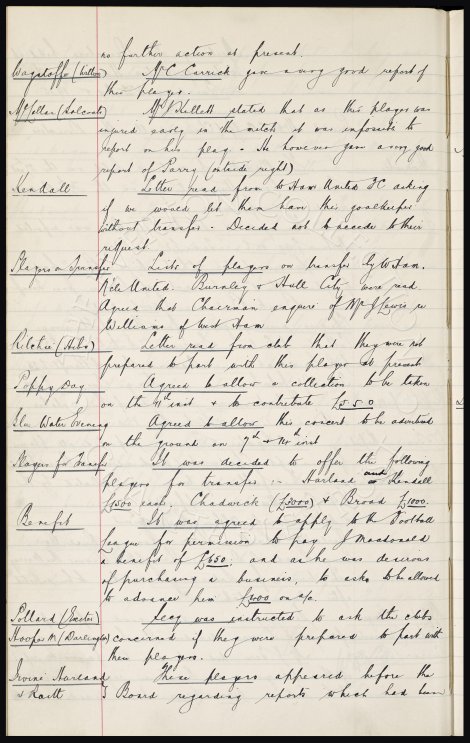 no further action at present.
Wagstaffe (Luton) Mr C Carrick gave a very good report of
this player.
McCollar (Holcoats) Mr J Kellett stated that as this player was
injured early in the match it was impossible to
report on his play. He however gave a very good
report of Parry (outside right)
Kendall Letter read from W Ham United FC asking
if we would let them have this goalkeeper
without transfer. Decided not to accede to their
request.
Players on Transfer Lists of players on transfer by W Ham,
N'cle United, Burnley & Hull City were read.
Agreed that Chairman enquire of Mr J Lewis re
Williams of West Ham
Ritchie (Hibs) Letter read from club that they were not
prepared to part with this player at present
Poppy Day Agreed to allow a collection to be taken
on the 11th inst & to contribute £5.5.0
Water Evening Agreed to allow this concert to be advertised
on the ground on 7th & 14th inst
Players for Transfer It was decided to offer the following
players for transfer :- Harland and Kendall
£1500 each, Chadwick (£2000) & Broad £1000.
Benefit It was agreed to apply to the Football
League for permission to pay J Macdonald
a benefit of £650 and as he was desirous
of purchasing a business, to ask to be allowed
to advance him on a/c.
Pollard (Exeter) Secy was instructed to ask the clubs
Hooper M (Darlington) concerned if they were prepared to part with
these players.
Irvine Harland These players appeared before the
& Raitt } Board regarding reports which had been